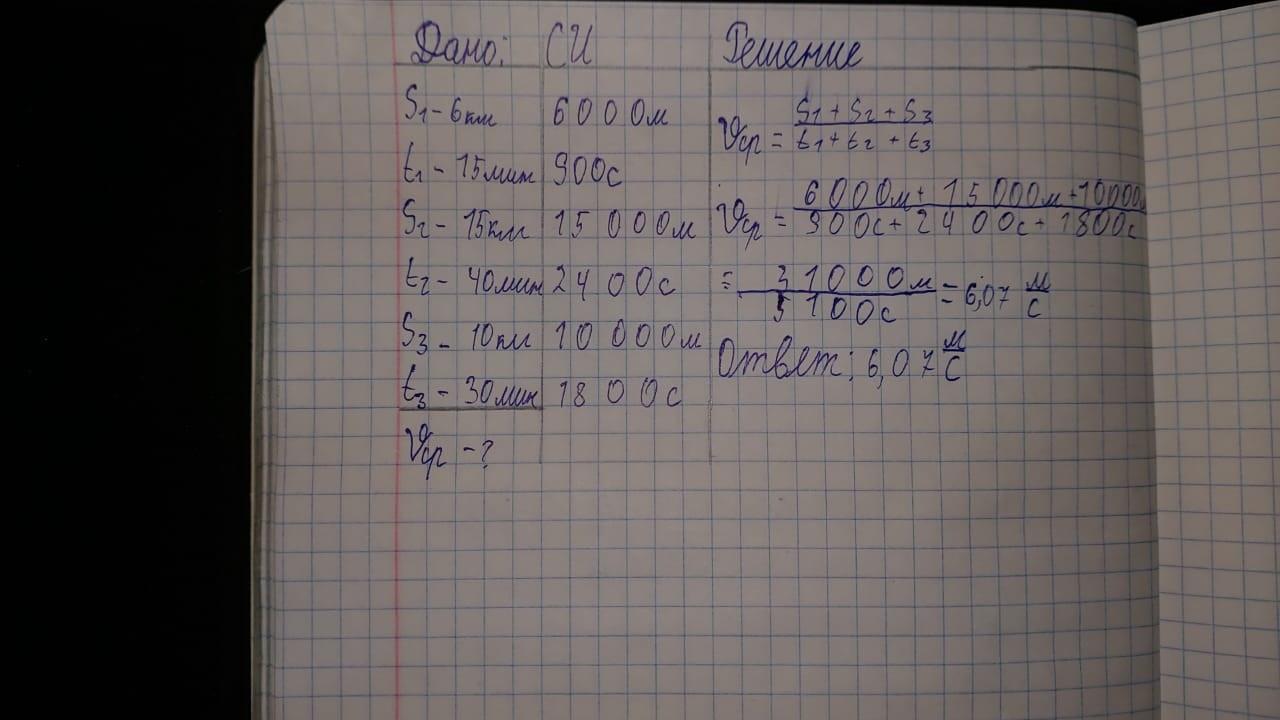 Дано: СИ Решение
S1 - 6км 6000м
t1 - 15мин 900с
S2 - 15км 15000м
t2 - 40мин 2400с
S3 - 10км 10000м
t3 - 30мин 1800с
Vср - ?
Vср = S1 + S2 + S3 / t1 + t2 + t3
Vср = 6000м + 15000м + 10000м / 900с + 2400с + 1800с
= 31000м / 5100с = 6,07 м/с
Ответ: 6,07 м/с